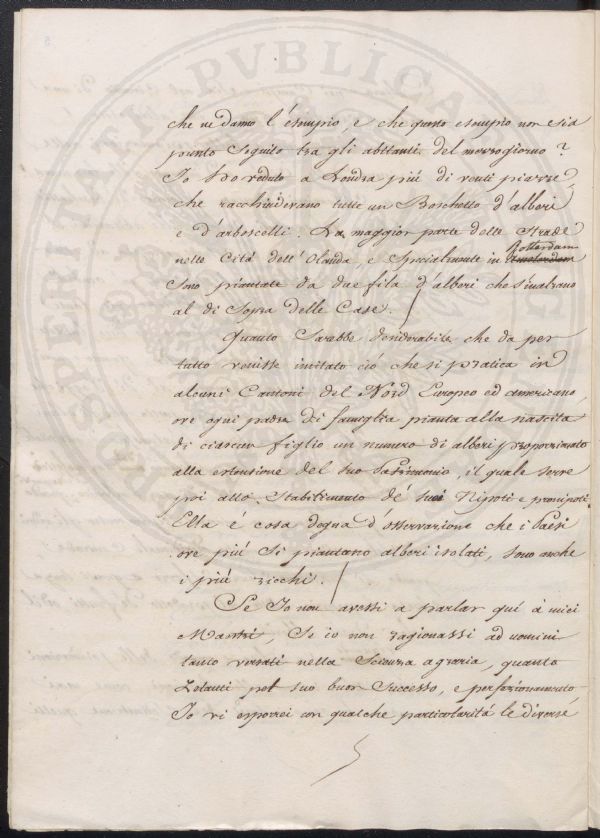 PROSPERITATI PVBLICAE AVGENDAE
che ne danno l'ésempio, e che questo esempio non sia
punto Seguito tra gli abitanti del mezzogiorno?
Io ho veduto a Londra piú di venti piazze,
che racchiudevano tutte un Boschetto d'alberi
e d'arboscelli. La maggior parte delle Strade
nelle Cità dell'Olanda, e specialmente in Amsterdam
Rotterdam
Sono piantate da due fila d'alberi che s'inalzano
al di Sopra delle Case.
Quanto Sarebbe desiderabile che da per
tutto venisse imitato ció che si pratica in
alcuni Cantoni del Nord Europeo ed americano,
ove ogni padre di famiglia pianta alla nascita
di ciascun figlio un numero di alberi proporzionato
alla estensione del suo Patrimonio, il quale serve
poi allo Stabilimento de' suoi Nipoti e pronipoti.
Ella é cosa degna d'osservazione che i Paesi
ove piú Si piantano alberi isolati, sono anche
i piú ricchi.
Se Io non avessi a parlar quí á miei
Maestri, Se io non ragionassi ad uomini
tanto versati nella Scienza agraria, quanto
Zelanti pel suo buon Successo, e perfezionamento,
Io vi esporrei con qualche particolarità le diverse